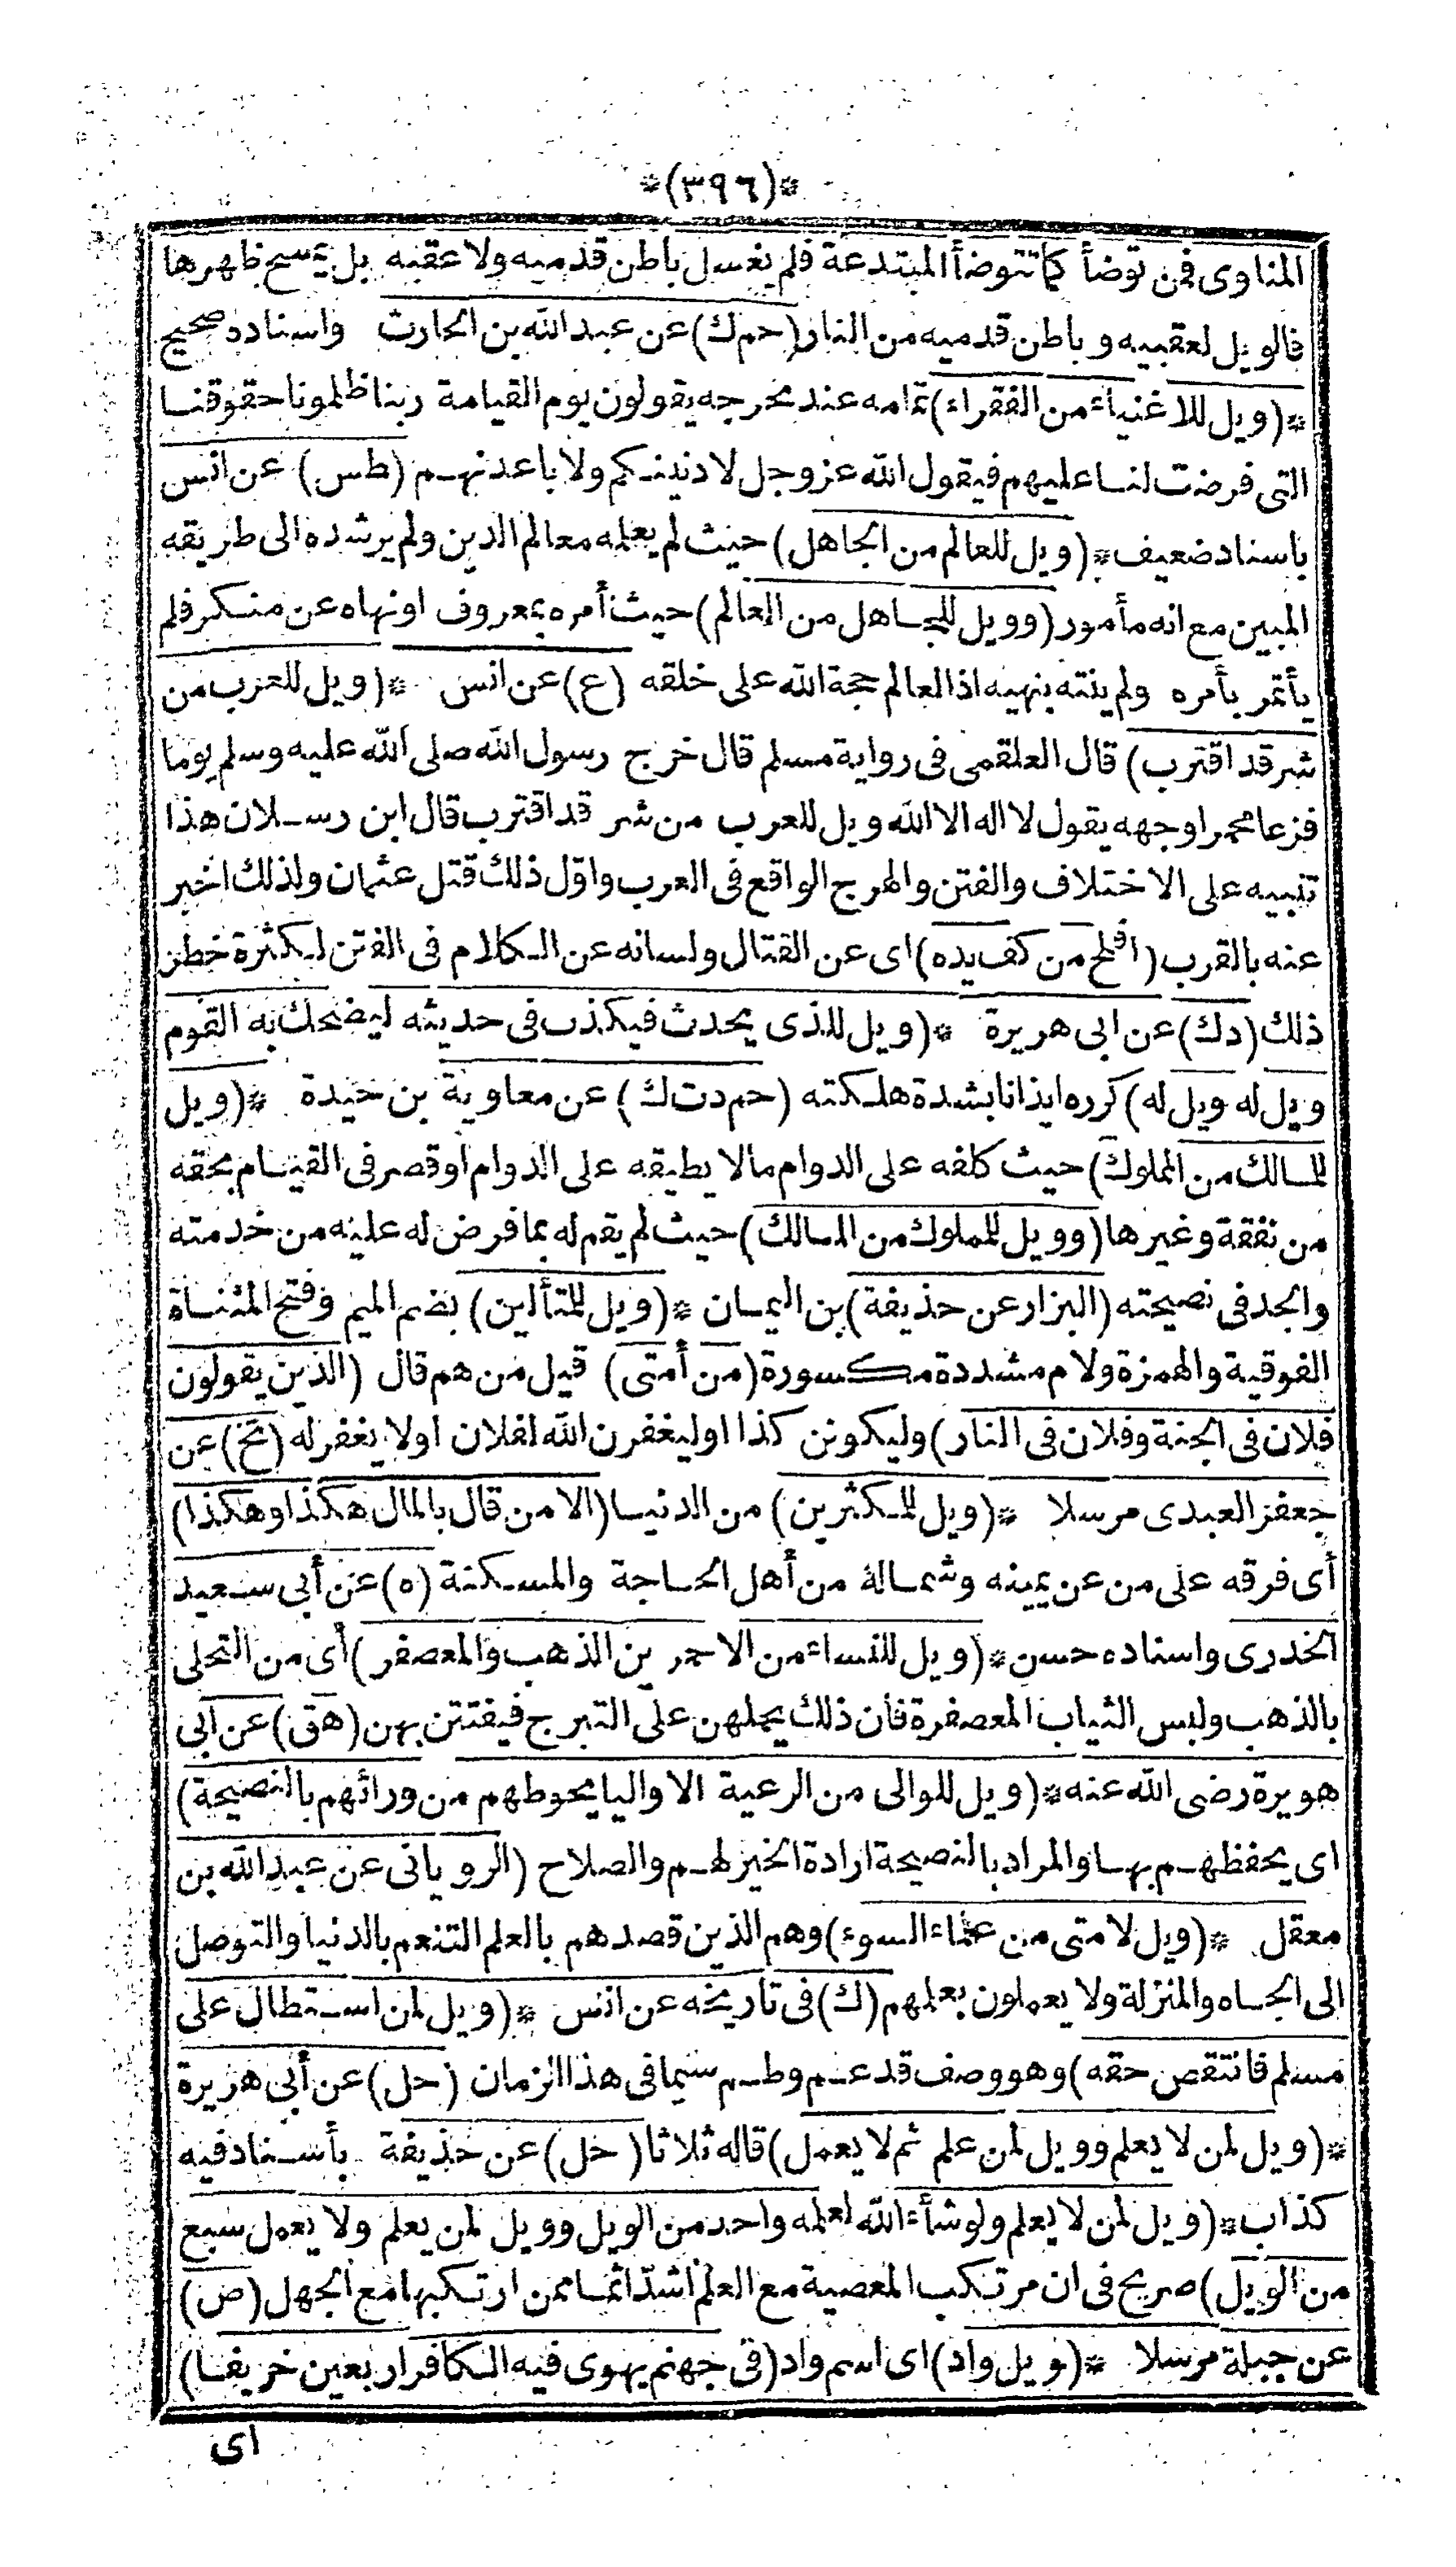 *(٣٩٦)*
المناوى فمن توضأ كما تتوضأ المبتدعة فلم يغسل باطن قدميه ولا عقبه بل يمسح ظهرها
فالويل لعقبيه وباطن قدميه من النار (حم ك) عن عبد الله بن الحارث واسناده صحيح
*(ويل للاغنياء من الفقراء) تمامه عند مخرجه يقولون يوم القيامة ربنا ظلمونا حقوقنا
التى فرضت لنا عليهم فيقول الله عز وجل لادنينكم ولاباعدنهم (طس) عن انس
باسناد ضعيف *(ويل للعالم من الجاهل) حيث لم يعلمه معالم الدين ولم يرشده الى طريقه
المبين مع انه مأمور (وويل للجاهل من العالم) حيث أمره بمعروف اونهاه عن منكر فلم
يأتمر بأمره ولم ينته بنهيه اذ العالم حجة الله على خلقه (ع) عن انس *(ويل للعرب من
شر قد اقترب) قال العلقمى فى رواية مسلم قال خرج رسول الله صلى الله عليه وسلم يوما
فزعا محمرا وجهه يقول لا اله الا الله ويل للعرب من شر قد اقترب قال ابن رسلان هذا
تنبيه على الاختلاف والفتن والهرج الواقع فى العرب واوّل ذلك قتل عثمان ولذلك اخبر
عنه بالقرب (افلح من كف يده) اى عن القتال ولسانه عن الكلام فى الفتن لكثرة خطر
ذلك (د ك) عن ابى هريرة *(ويل للذى يحدث فيكذب فى حديثه ليضحك به القوم
ويل له ويل له) كرره ايذانا بشدة هلكته (حم د ت ك) عن معاوية بن حيدة *(ويل
للمالك من المملوك) حيث كلفه على الدوام مالا يطيقه على الدوام اوقصر فى القيام بحقه
من نفقة وغيرها (وويل للمملوك من المالك) حيث لم يقم له بما فرض له عليه من خدمته
والجد فى نصيحته (البزار عن حذيفة) بن اليمان *(ويل للمتألين) بضم الميم وفتح المثناة
الفوقية والهمزة ولام مشددة مكسورة (من أمتى) قيل من هم قال (الذين يقولون
فلان فى الجنة وفلان فى النار) وليكونن كذا اوليغفرن الله لفلان اولا يغفر له (تخ) عن
جعفر العبدى مرسلا *(ويل للمكثرين) من الدنيا (الا من قال بالمال هكذا وهكذا)
أى فرقه على من عن يمينه وشماله من أهل الحاجة والمسكنة (ه) عن أبى سعيد
الخدرى واسناده حسن *(ويل للنساء من الاحمرين الذهب والمعصفر) أى من التحلى
بالذهب ولبس الثياب المعصفرة فان ذلك يحملهن على التبرج فيفتتن بهن (هق) عن ابى
هريرة رضى الله عنه *(ويل للوالى من الرعية الا واليا يحوطهم من ورائهم بالنصيحة)
اى يحفظهم بها والمراد بالنصيحة ارادة الخير لهم والصلاح (الرويانى عن عبد الله بن
معقل *(ويل لامتى من علماء السوء) وهم الذين قصدهم بالعلم التنعم بالدنيا والتوصل
الى الجاه والمنزلة ولا يعملون بعلمهم (ك) فى تاريخه عن انس *(ويل لمن استطال على
مسلم فانتقص حقه) وهو وصف قد عم وطم سيما فى هذا الزمان (حل) عن أبى هريرة
*(ويل لمن لا يعلم وويل لمن علم ثم لا يعمل) قاله ثلاثا (حل) عن حذيفة بأسناد فيه
كذاب *(ويل لمن لا يعلم ولو شاء الله لعلمه واحد من الويل وويل لمن يعلم ولا يعمل سبع
من الويل) صريح فى ان مرتكب المعصية مع العلم اشدّ اثما ممن ارتكبها مع الجهل (ص)
عن جبلة مرسلا *(ويل واد) اى اسم واد (فى جهنم يهوى فيه الكافر اربعين خريفا)
اى